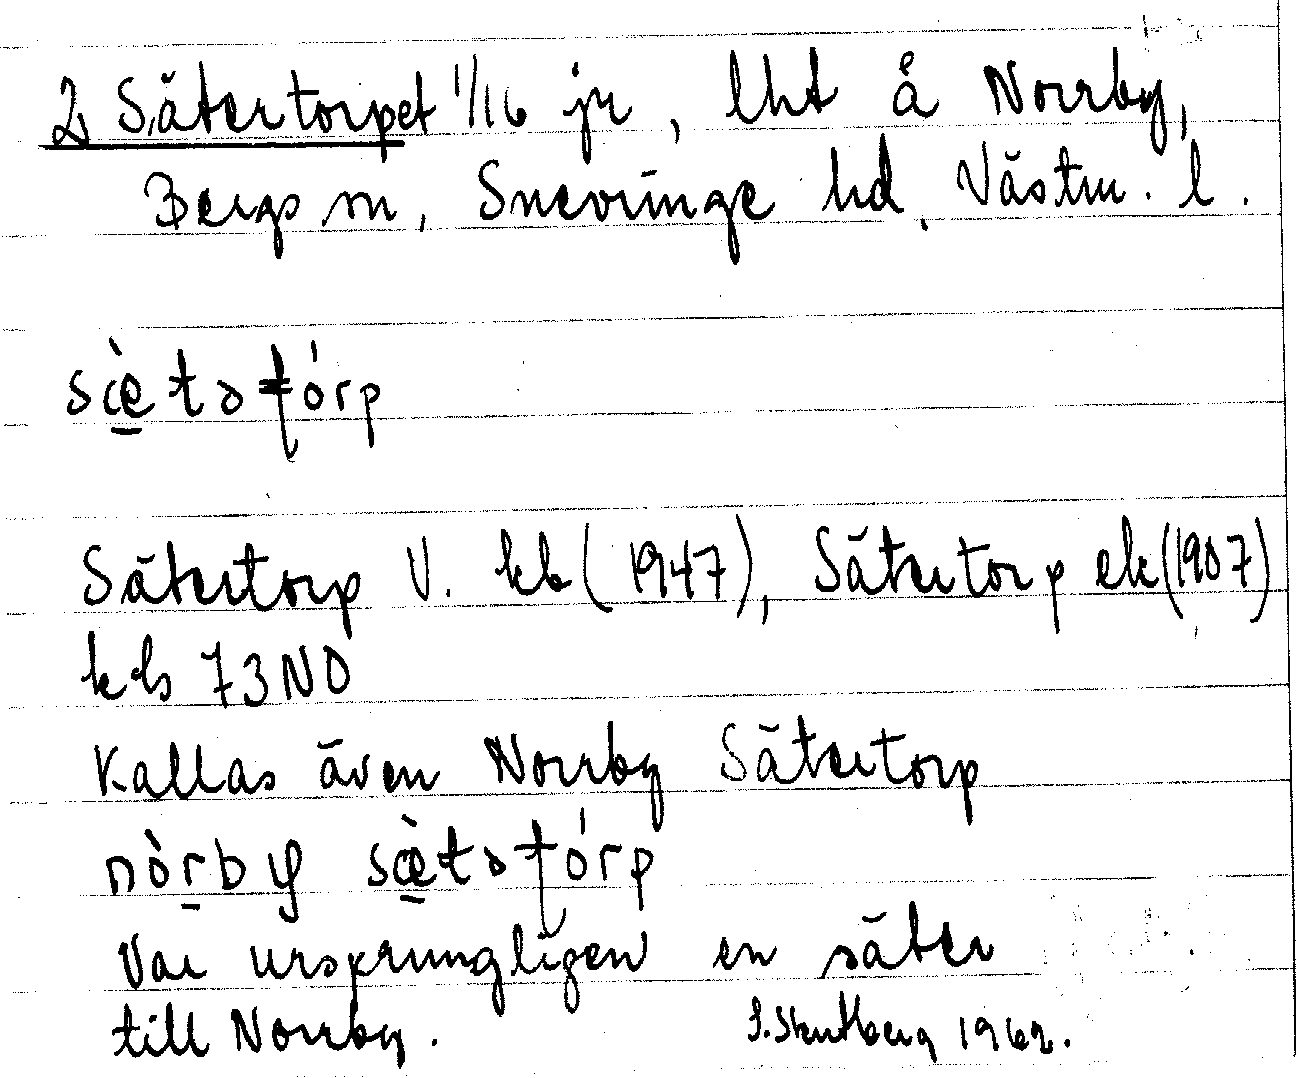 2 Sätertorpet 1/16 jr, lht å Norrby,
Bergs sn, Snevringe hd, Västm. l.
sæ̀tətórp
Sätertorp V. kb (1947), Sätertorp ek (1907)
kbs 73NO
Kallas även Norrby Sätertorp
nòrby sæ̀tətórp
Var ursprungligen en säter
till Norrby.
1962.